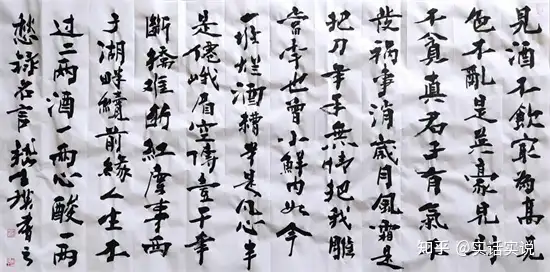 見酒不飲實為高見
色不亂是英豪見財
不貪真君子有氣
發祸事消歲月風霜是
把刀年手無情把我雕
當年也曾小鮮肉如今
一堆烂酒糟半是凡心半
是僊峨眉空濤壹千年
斷橋難斷紅塵事西
子湖畔續前緣人生不
過二兩酒一兩心酸一兩
愁錄名言
知乎 @实话实说